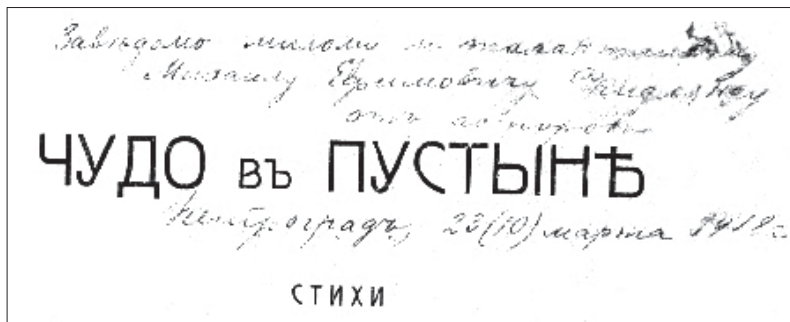 Заведомо милому и талантливому
Михаилу Ефимовичу
отъ
ЧУДО въ ПУСТЫНѢ
Петроградъ, 23(10) марта 1918 г.
СТИХИ